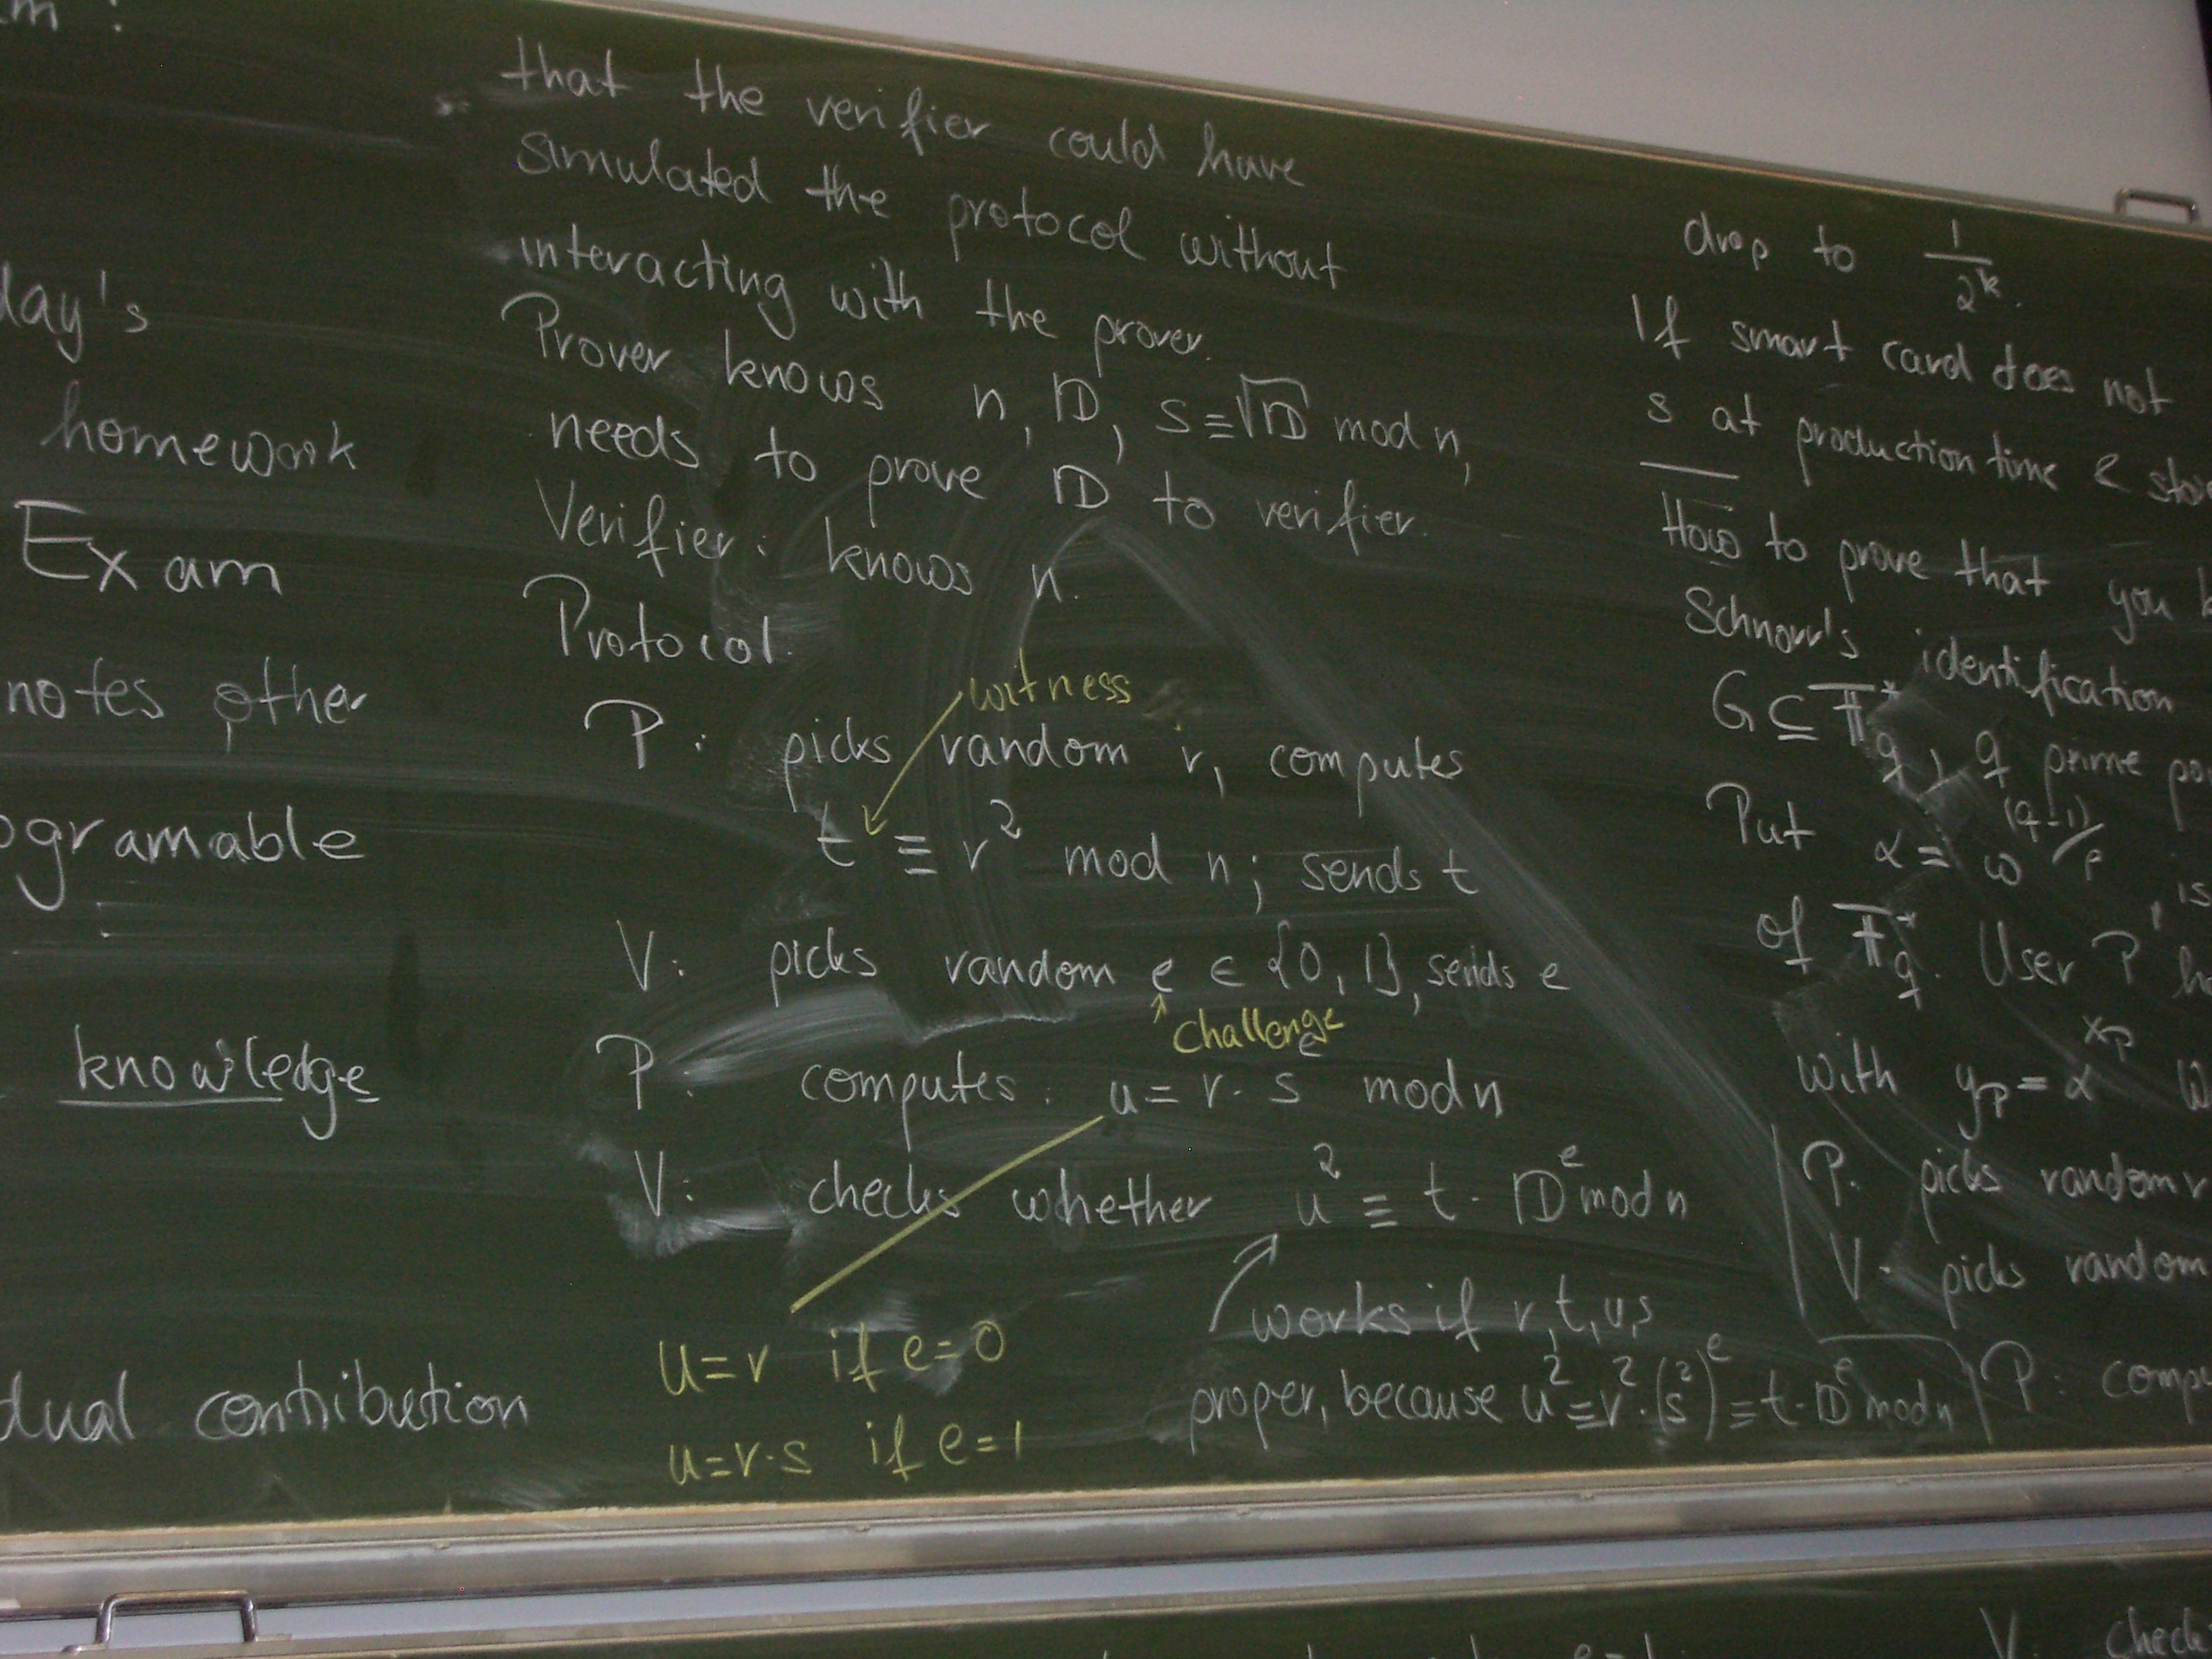 day's
homework
Exam
notes other
ogramable
knowledge
dual contribution
that the verifier could have
simulated the protocol without
interacting with the prover.
Prover knows n, ID, s≡√ID mod n,
needs to prove ID to verifier.
Verifier: knows n.
Protocol:
witness
P: picks random r, computes
t ≡ r² mod n; sends t
V: picks random e ∈ {0,1}, sends e
challenge
P: computes: u = r · s^e mod n
V: checks whether u² ≡ t · ID^e mod n
works if r,t,u,s
proper, because u² ≡ r² · (s²)^e ≡ t · ID^e mod n
u=r if e=0
u=r·s if e=1
drop to 1/2^k.
If smart card does not
s at production time &
How to prove that you
Schnorr's identification
G ⊆ F*_q, q prime
Put α = ω^(q-1)/p, is
of F*_q. User P
with y_P = α^x_P
P: picks random r
V: picks random
P: comp
V: check